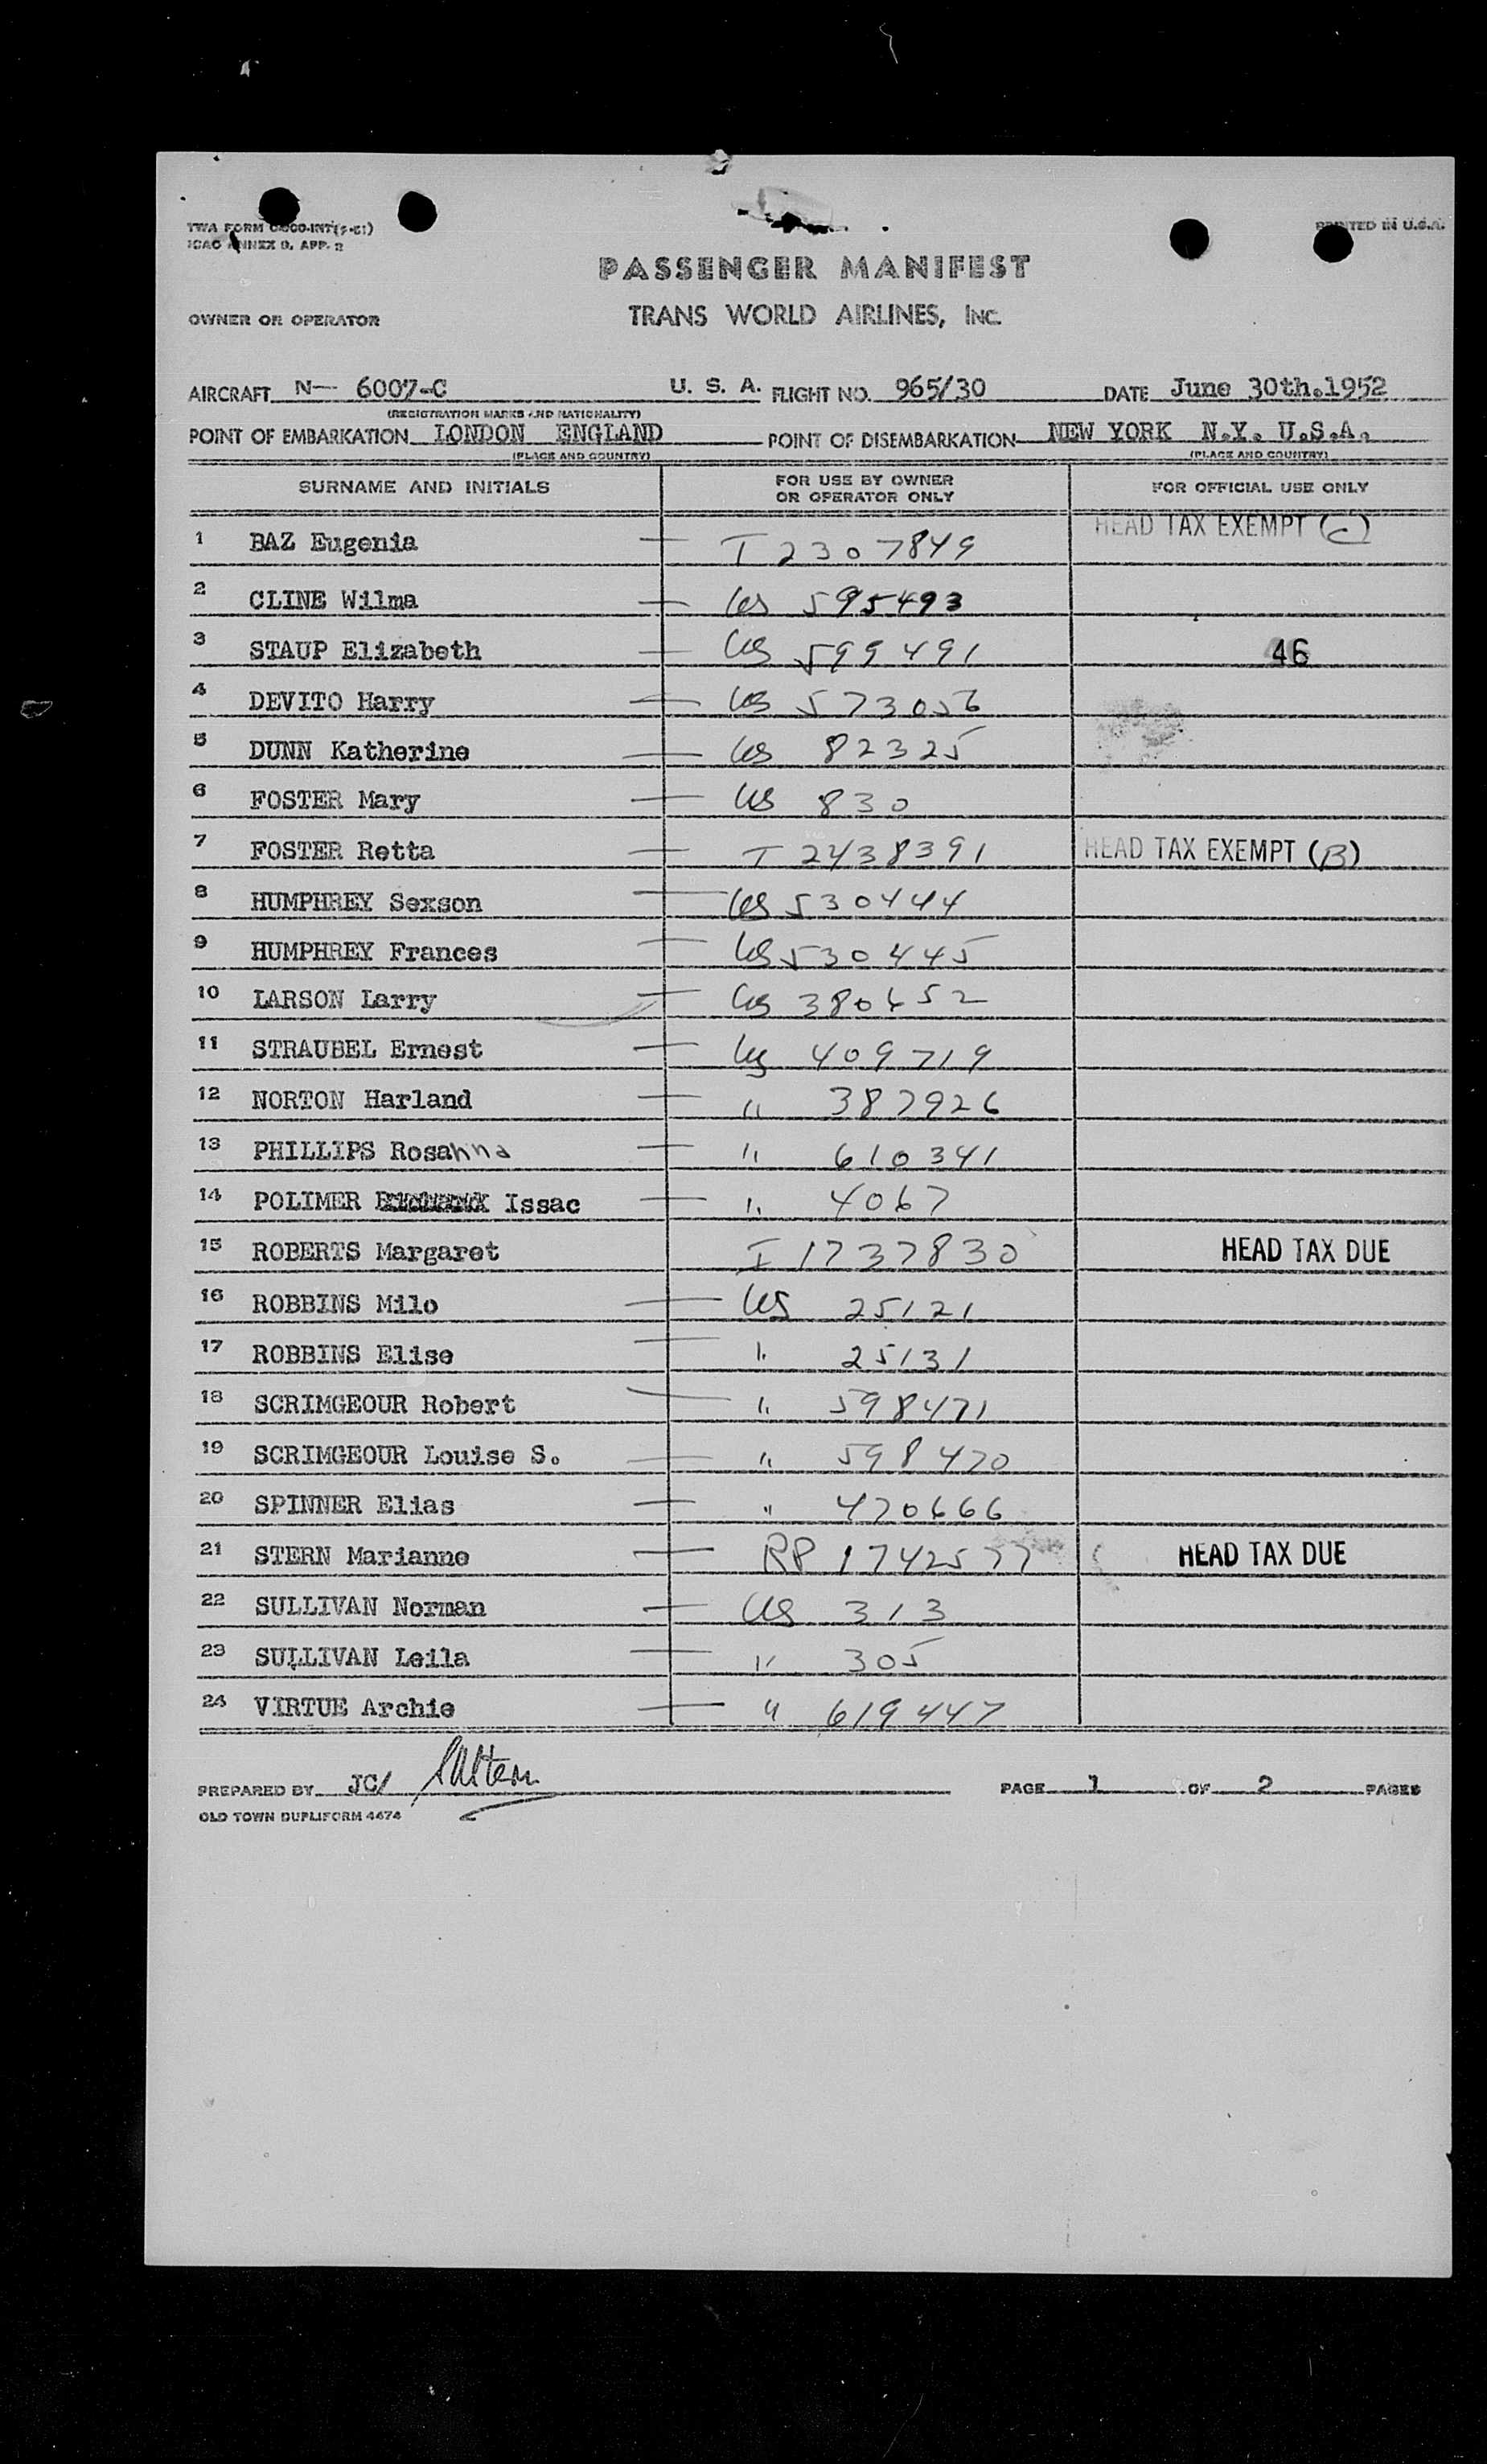 TWA FORM
ICAO ANNEX 9, APP. 2
PRINTED IN U.S.A.
PASSENGER MANIFEST
OWNER OR OPERATOR TRANS WORLD AIRLINES, INC.
AIRCRAFT N— 6007-C U. S. A. FLIGHT NO. 965/30 DATE June 30th.1952
(REGISTRATION MARKS AND NATIONALITY)
POINT OF EMBARKATION LONDON ENGLAND POINT OF DISEMBARKATION NEW YORK N.Y. U.S.A.
(PLACE AND COUNTRY) (PLACE AND COUNTRY)
SURNAME AND INITIALS FOR USE BY OWNER OR OPERATOR ONLY FOR OFFICIAL USE ONLY
1 BAZ Eugenia — I 2307849 HEAD TAX EXEMPT (C)
2 CLINE Wilma — US 595493
3 STAUP Elizabeth — US 599491 46
4 DEVITO Harry — US 573056
5 DUNN Katherine — US 82325
6 FOSTER Mary — US 830
7 FOSTER Retta — I 2438391 HEAD TAX EXEMPT (B)
8 HUMPHREY Sexson — US 530444
9 HUMPHREY Frances — US 530445
10 LARSON Larry — US 380652
11 STRAUBEL Ernest — US 409719
12 NORTON Harland — " 387926
13 PHILLIPS Rosanna — " 610341
14 POLIMER Issac — " 4067
15 ROBERTS Margaret I 1737830 HEAD TAX DUE
16 ROBBINS Milo — US 25121
17 ROBBINS Elise — " 25131
18 SCRIMGEOUR Robert — " 598471
19 SCRIMGEOUR Louise S. — " 598470
20 SPINNER Elias — " 470666
21 STERN Marianne — RP 1742577 HEAD TAX DUE
22 SULLIVAN Norman — US 313
23 SULLIVAN Leila — " 305
24 VIRTUE Archie — " 619447
PREPARED BY JC/ PAGE 1 OF 2 PAGES
OLD TOWN DUPLIFORM 4474